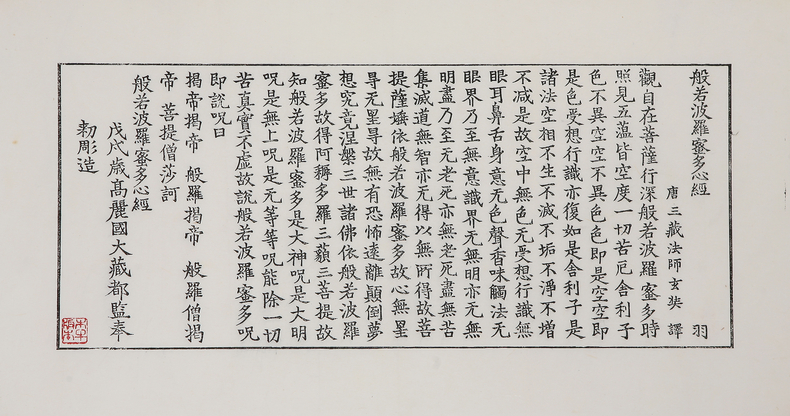 般若波羅蜜多心經 羽
唐三藏法師玄奘 譯
觀自在菩薩行深般若波羅蜜多時
照見五藴皆空度一切苦厄舍利子
色不異空空不異色色即是空空即
是色受想行識亦復如是舍利子是
諸法空相不生不滅不垢不淨不增
不减是故空中無色无受想行識無
眼耳鼻舌身意无色聲香味觸法无
眼界乃至無意識界无無明亦无無
明盡乃至无老死亦無老死盡無苦
集滅道無智亦无得以無所得故菩
提薩埵依般若波羅蜜多故心無罣
㝵无罣㝵故無有恐怖遠離顛倒夢
想究竟涅槃三世諸佛依般若波羅
蜜多故得阿耨多羅三藐三菩提故
知般若波羅蜜多是大神呪是大明
呪是無上呪是无等等呪能除一切
苦真實不虛故說般若波羅蜜多呪
即說呪曰
揭帝揭帝 般羅揭帝 般羅僧揭
帝 菩提僧莎訶
般若波羅蜜多心經
戊戌歲高麗國大藏都監奉
勑彫造